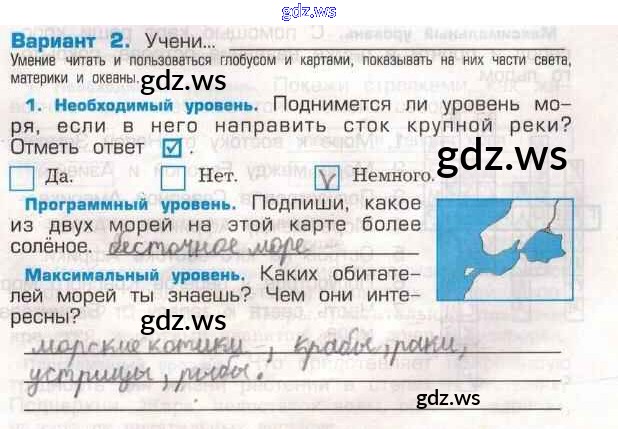 gdz.ws
Вариант 2. Учени...
Умение читать и пользоваться глобусом и картами, показывать на них части света,
материки и океаны.
gdz.ws
1. Необходимый уровень. Поднимется ли уровень мо-
ря, если в него направить сток крупной реки?
Отметь ответ ☑.
gdz.ws
Да. Нет. Немного.
Программный уровень. Подпиши, какое
из двух морей на этой карте более
солёное. бесточное море
Максимальный уровень. Каких обитате-
лей морей ты знаешь? Чем они инте-
ресны?
gdz.ws
морские котики, крабы, раки,
устрицы, рыбы.
gdz.ws